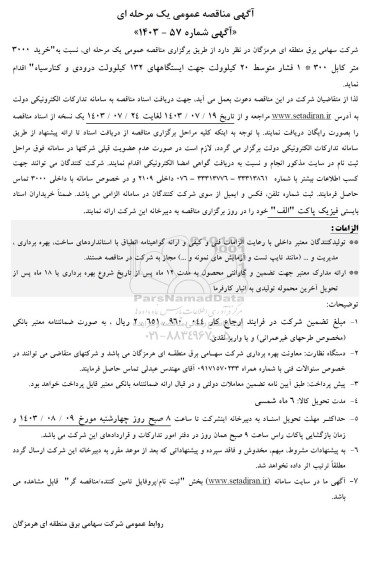 آگهی مناقصه عمومی یک مرحله ای
«آگهی شماره ۵۷ - ۱۴۰۳»
شرکت سهامی برق منطقه ای هرمزگان در نظر دارد از طریق برگزاری مناقصه عمومی یک مرحله ای، نسبت به "خرید ۳۰۰۰
متر کابل ۳۰۰ * ۱ فشار متوسط ۲۰ کیلوولت جهت ایستگاههای ۱۳۲ کیلوولت درودی و کنارسیاه" اقدام
نماید.
لذا از متقاضیان شرکت در این مناقصه دعوت بعمل می آید، جهت دریافت اسناد مناقصه به سامانه تدارکات الکترونیکی دولت
به آدرس www.setadiran.ir مراجعه و از تاریخ ۱۹ / ۰۷ / ۱۴۰۳ لغایت ۲۴ / ۰۷ / ۱۴۰۳ یک نسخه از اسناد مناقصه
را بصورت رایگان دریافت نمایند. با توجه به اینکه کلیه مراحل برگزاری مناقصه از دریافت اسناد تا ارائه پیشنهاد از طریق
سامانه تدارکات الکترونیکی دولت برگزار می گردد، لازم است در صورت عدم عضویت قبلی شرکتها در سامانه فوق مراحل
ثبت نام در سایت مذکور انجام و نسبت به دریافت گواهی امضا الکترونیکی اقدام نمایند. شرکت کنندگان می توانند جهت
کسب اطلاعات بیشتر با شماره ۳۳۳۱۳۸۶۱ - ۳۳۳۱۳۷۷۶ - ۰۷۶ داخلی ۲۱۰۹ و در خصوص سامانه با داخلی ۳۰۰۰ تماس
حاصل فرمایند. ثبت شماره تلفن، فکس و ایمیل از سوی شرکت کنندگان در سامانه الزامی می باشد. ضمناً خریداران اسناد
بایستی فیزیک پاکت "الف" خود را در روز برگزاری مناقصه به دبیرخانه این شرکت ارائه نمایند.
الزامات :
** تولیدکنندگان معتبر داخلی با رعایت الزامات فنی و کیفی و ارائه گواهینامه انطباق با استانداردهای ساخت، بهره برداری ،
مدیریت و ... (مانند تایپ تست و آزمایش های نمونه و ...) مجاز به شرکت در مناقصه هستند.
** ارائه مدارک معتبر جهت تضمین و گارانتی محصول به مدت ۱۲ ماه پس از تاریخ شروع بهره برداری یا ۱۸ ماه پس از
تحویل آخرین محموله تولیدی به انبار کارفرما
توضیحات:
۱- مبلغ تضمین شرکت در فرایند ارجاع کار ۰۴۴ ، ۹۶۰ ، ۶۵۱ ، ۲ ریال ، به صورت ضمانتنامه معتبر بانکی
(مخصوص طرحهای غیرعمرانی) و یا واریز نقدی.
۲- دستگاه نظارت: معاونت بهره برداری شرکت سهامی برق منطقه ای هرمزگان می باشد و شرکتهای متقاضی می توانند در
خصوص سئوالات فنی با شماره همراه ۰۹۱۷۱۵۷۰۲۳۳ آقای مهندس عبدلی تماس حاصل فرمایند.
۳- پیش پرداخت: طبق آیین نامه تضمین معاملات دولتی و در قبال ارائه ضمانتنامه بانکی معتبر قابل پرداخت خواهد بود.
۴- مدت تحویل کالا: ۶ ماه شمسی
۵- حداکثر مهلت تحویل اسناد به دبیرخانه اینشرکت تا ساعت ۸ صبح روز چهارشنبه مورخ ۰۹ / ۰۸ / ۱۴۰۳ و
زمان بازگشایی پاکات راس ساعت ۹ صبح همان روز در دفتر امور تدارکات و قراردادهای این شرکت می باشد.
۶- به پیشنهادات مشروط، مبهم، مخدوش و فاقد سپرده و پیشنهاداتی که بعد از موعد مقرر به دبیرخانه این شرکت ارسال گردد
مطلقاً ترتیب اثر داده نخواهد شد.
۷- آگهی ما در سایت سامانه (www.setadiran.ir) بخش "ثبت نام/پروفایل تامین کننده/مناقصه گر" قابل مشاهده می
باشد.
روابط عمومی شرکت سهامی برق منطقه ای هرمزگان